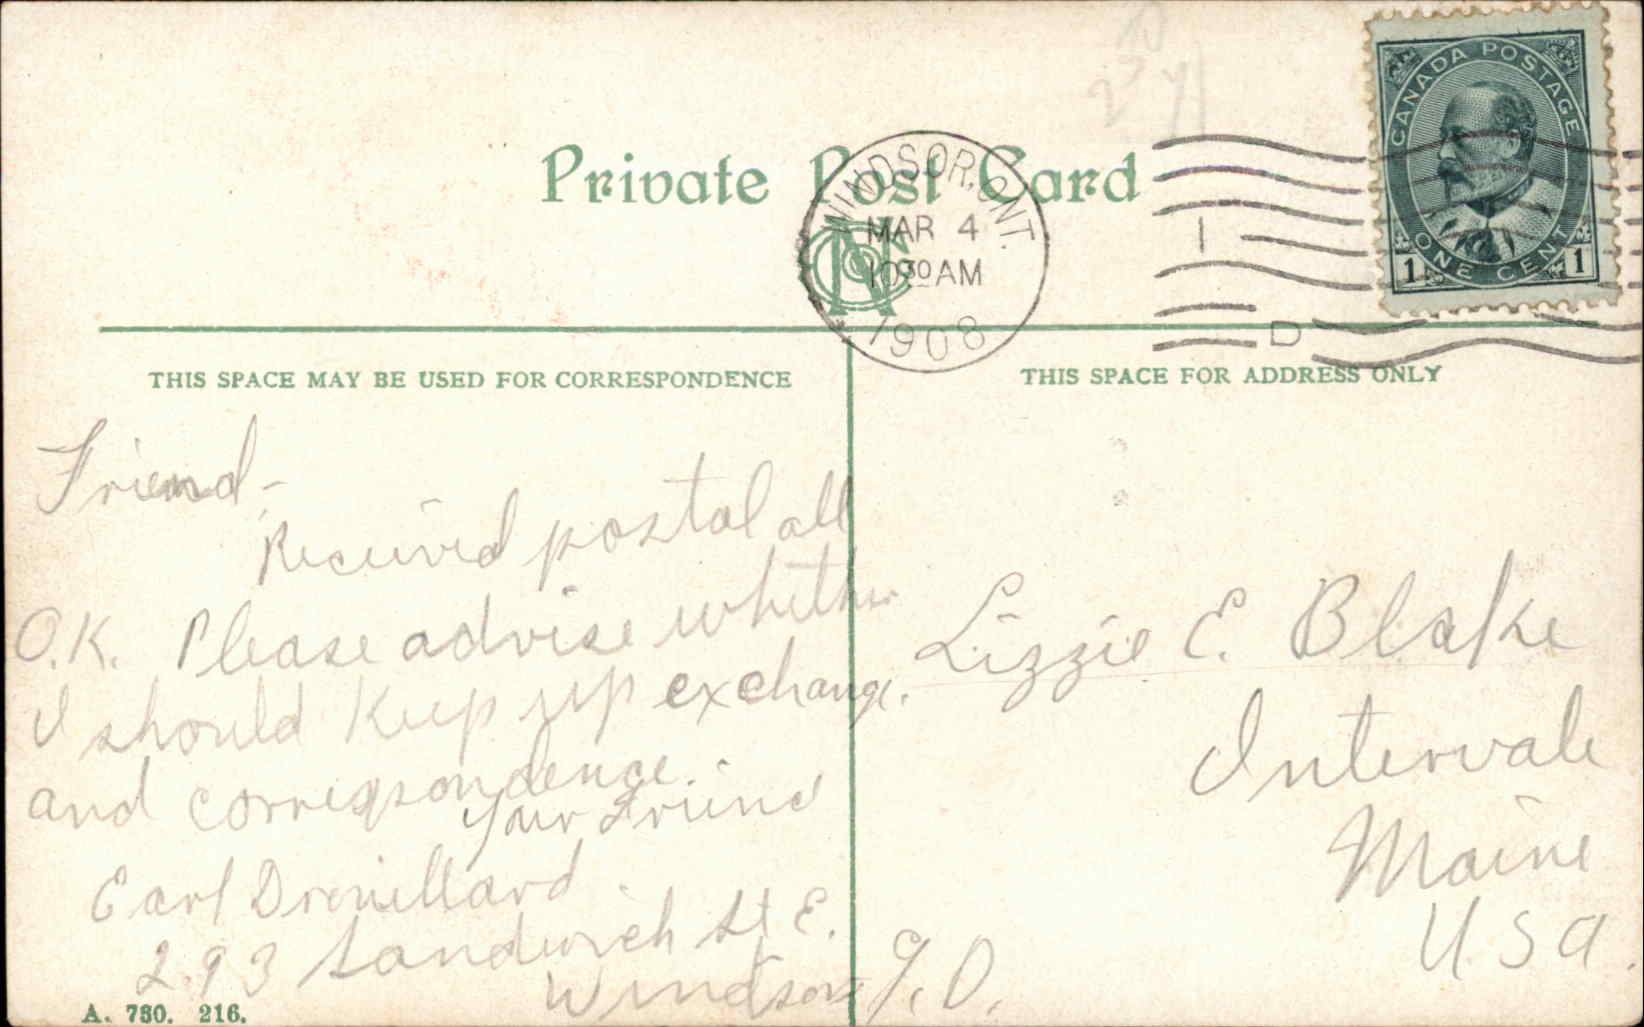 Private Post Card
WINDSOR, ONT.
MAR 4
10 30 AM
1908
1
D
CANADA POSTAGE
ONE CENT
1 1
THIS SPACE MAY BE USED FOR CORRESPONDENCE
THIS SPACE FOR ADDRESS ONLY
Friend -
Received postal all
O.K. Please advise whether
I should keep up exchange.
and correspondence.
Your Friend
Earl Drouillard
293 Sandwich St E.
Windsor
Lizzie E. Blake
Intervale
Maine
U.S.A.
A. 730. 216.